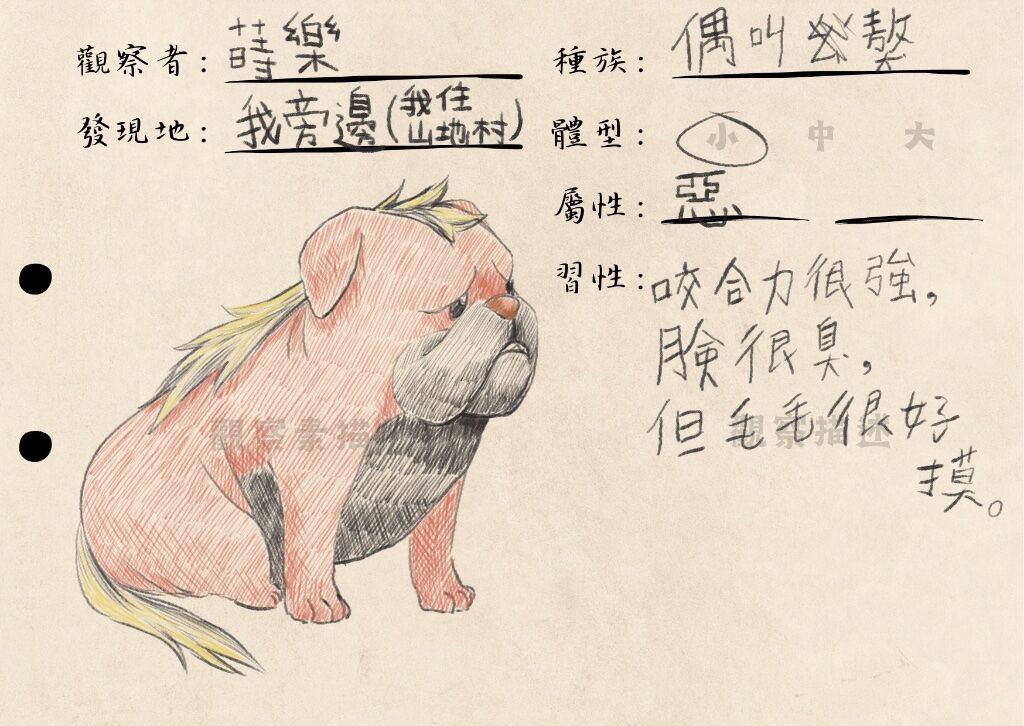 觀察者：蒔樂
發現地：我旁邊(我住山地村)
種族：偶叫獒
體型：小 中 大
屬性：惡
習性：咬合力很強，
臉很臭，
但毛毛很好
摸。
觀察素描
觀察描述